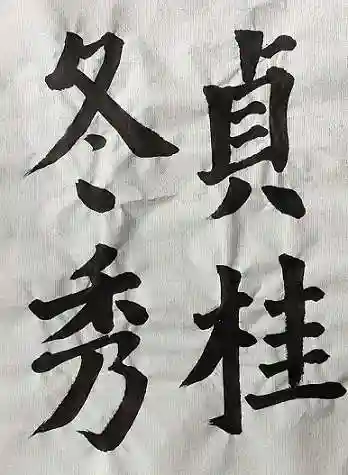 貞桂
冬秀